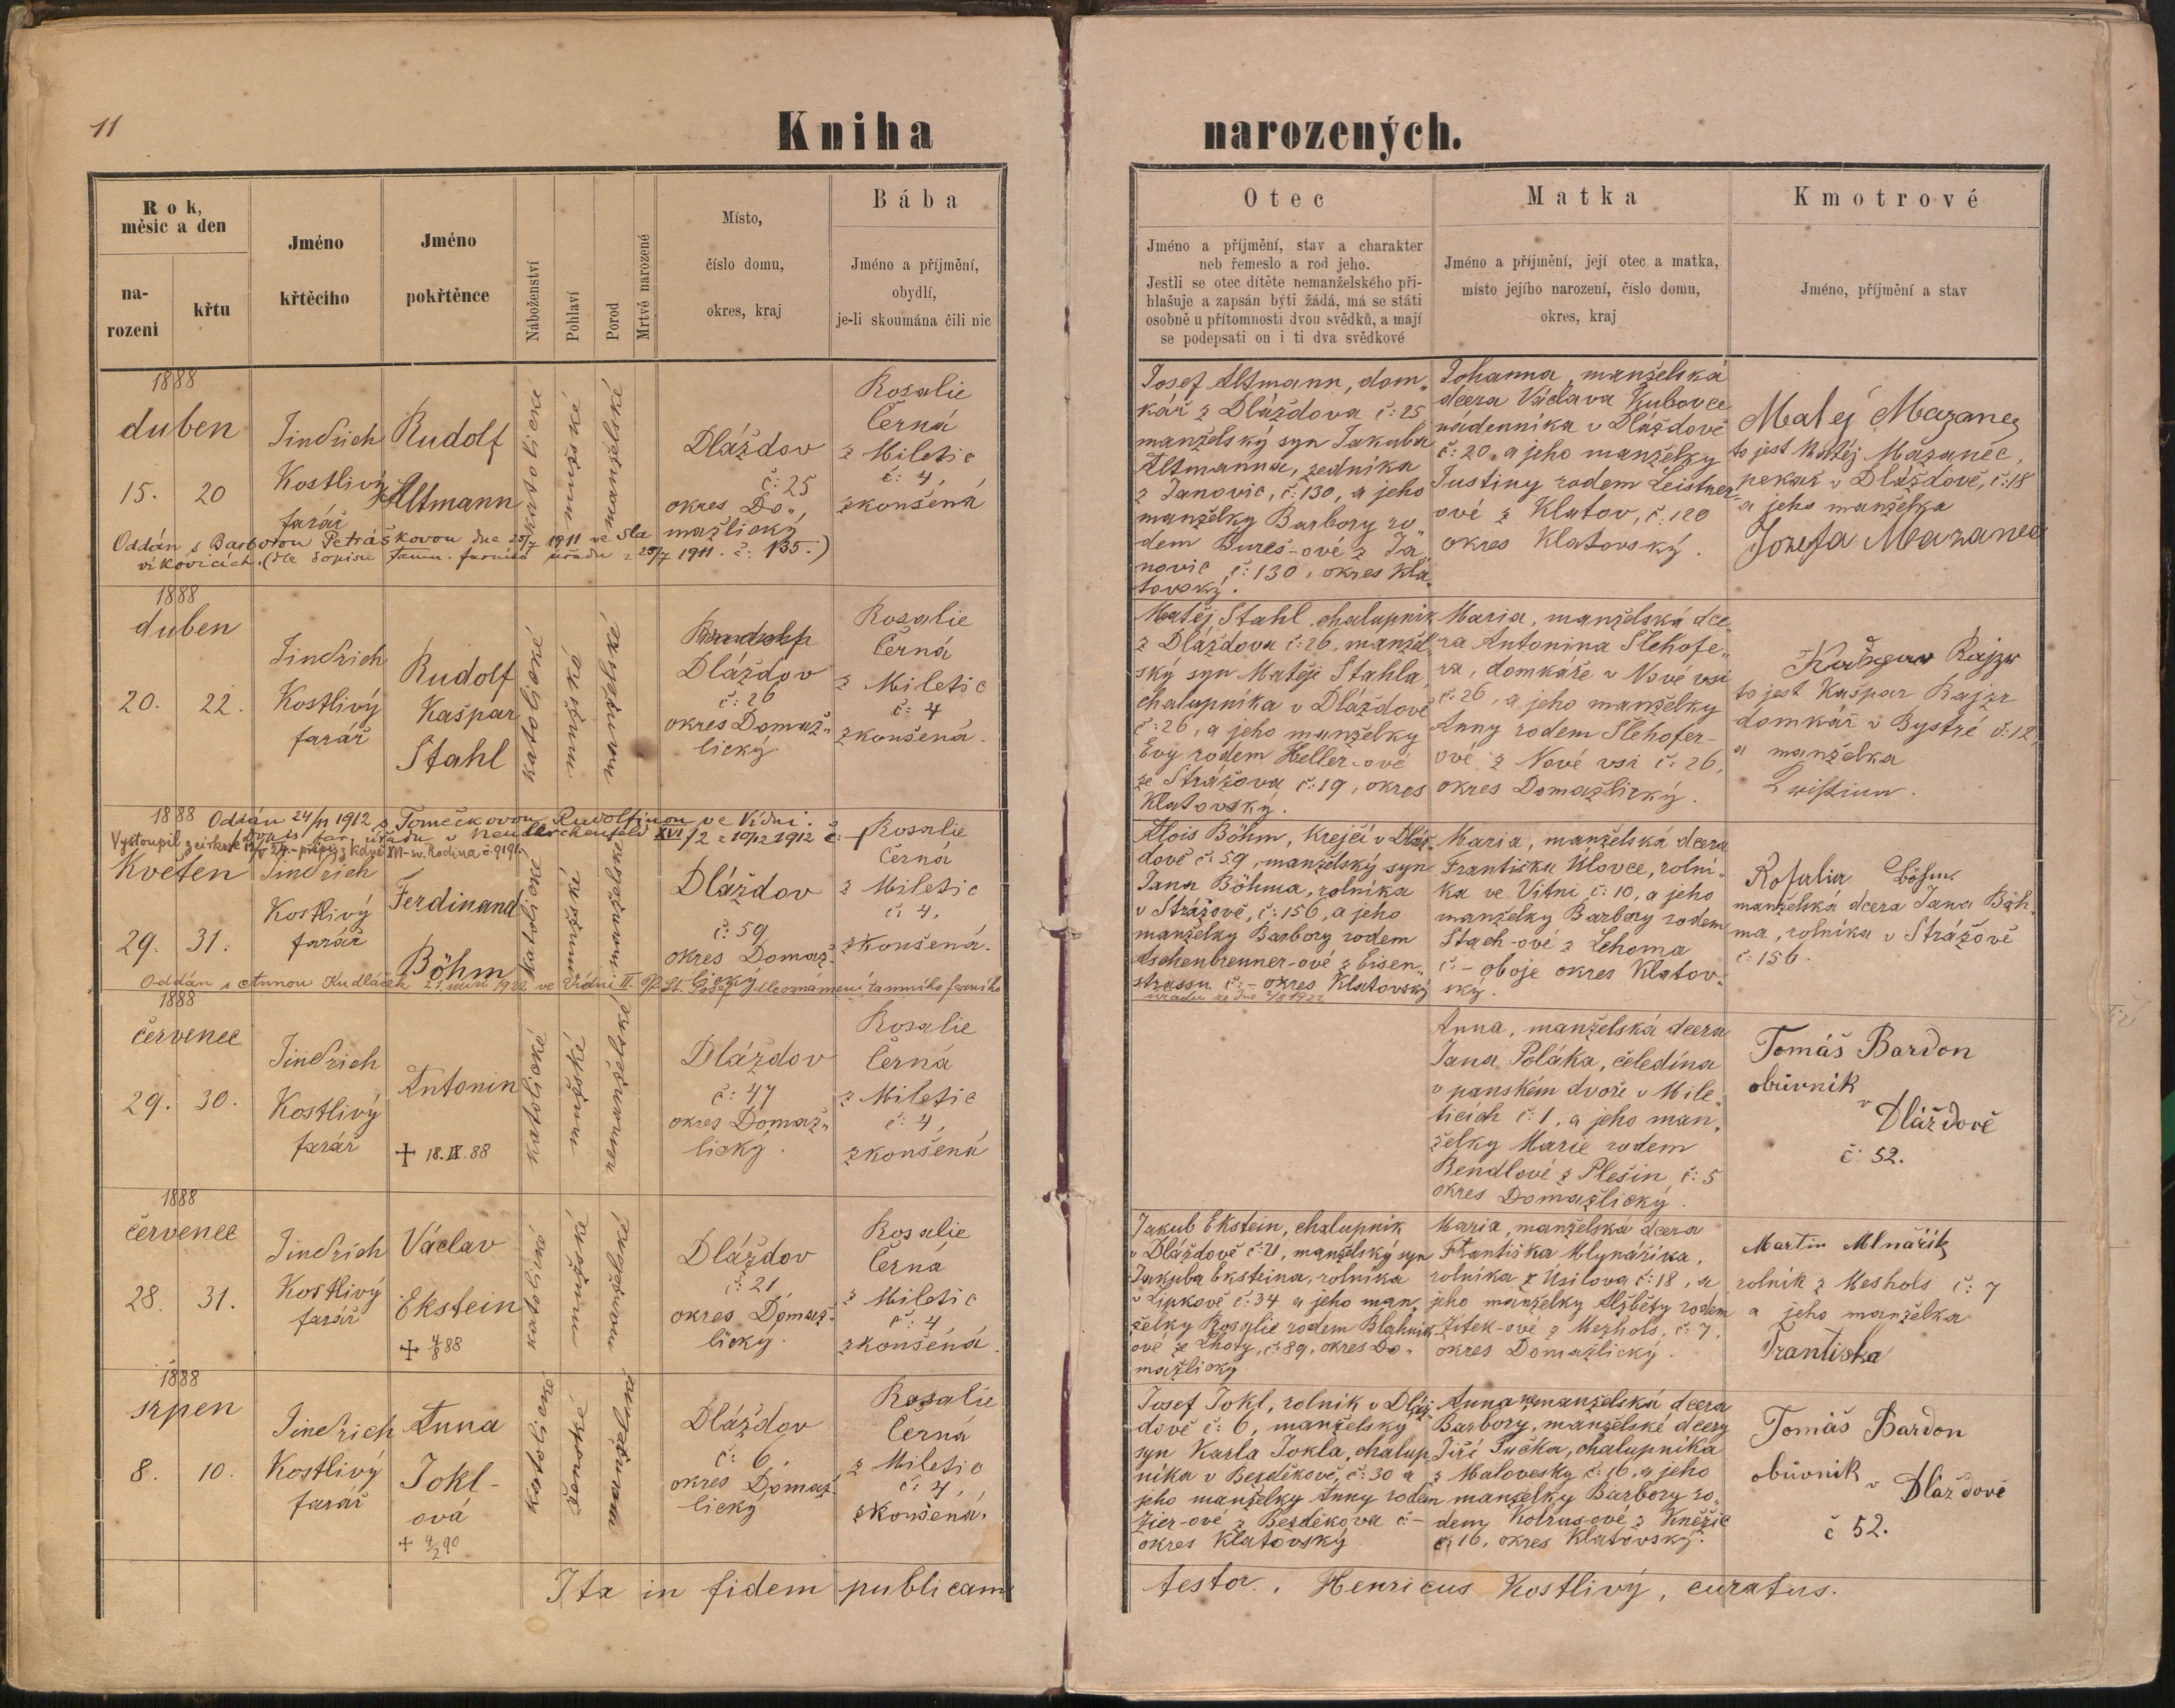 11
Kniha narozených.
Rok,
měsíc a den
na-
rození
křtu
Jméno
křtěcího
Jméno
pokřtěnce
Náboženství
Pohlaví
Porod
Mrtvě narozené
Místo,
číslo domu,
okres, kraj
Bába
Jméno a příjmění,
obydlí,
je-li skoumána čili nic
Otec
Jméno a příjmění, stav a charakter
neb řemeslo a rod jeho.
Jestli se otec dítěte nemanželského při-
hlašuje a zapsán býti žádá, má se státi
osobně u přítomnosti dvou svědků, a mají
se podepsati on i ti dva svědkové
Matka
Jméno a příjmění, její otec a matka,
místo jejího narození, číslo domu,
okres, kraj
Kmotrové
Jméno, příjmění a stav
1888
duben
15. 20
Jindřich
Kostlivý
farář
Rudolf
Altmann
katolické
mužské
manželské
Dláždov
č: 25
okres Do„
mažlický
Rosalie
Černá
z Miletic
č: 4,
zkoušená
Josef Altmann, dom„
kář z Dláždova č: 25
manželský syn Jakuba
Altmanna, zedníka
z Janovic, č: 130, a jeho
manželky Barbory ro„
dem Bureš-ové z Ja„
novic č: 130, okres Kla„
tovský.
Johanna, manželská
dcera Václava Kubovce
nádenníka v Dláždově
č: 20, a jeho manželky
Justiny rodem Leistner-
ové z Klatov, č: 120
okres Klatovský.
Matěj Mazanec
to jest Matěj Mazanec,
pekař v Dláždově, č: 18
a jeho manželka
Josefa Mazanec
Oddán s Barborou Petráškovou dne 25/7 1911 ve Sla
vikovicích. (dle dopisu tamn. farního úřadu z 25/7 1911. č: 135.)
1888
duben
20. 22.
Jindřich
Kostlivý
farář
Rudolf
Kašpar
Stahl
katolické
mužské
manželské
Dláždov
č: 26
okres Domaž„
lický
Rosalie
Černá
z Miletic
č: 4
zkoušená.
Matěj Stahl, chalupník
z Dláždova č: 26, manžel„
ský syn Matěje Stahla,
chalupníka v Dláždově
č: 26, a jeho manželky
Evy rodem Heller-ové
ze Strážova č: 19, okres
Klatovský.
Maria, manželská dce„
ra Antonina Šlehofe„
ra, domkáře v Nové vsi
č: 26, a jeho manželky
Anny rodem Šlehofer-
ové z Nové vsi č: 26,
okres Domažlický.
Kašpar Rajzr
to jest Kašpar Rajzr
domkář v Bystré č: 12,
a manželka
1888 Oddán 24/11 1912 s Tomečkovou Rudolfinou ve Vídni.
Květen
29. 31.
Jindřich
Kostlivý
farář
Ferdinand
Böhm
katolické
mužské
manželské
Dláždov
č: 59
okres Domaž„
lický
Rosalie
Černá
z Miletic
č: 4,
zkoušená.
Alois Böhm, krejčí v Dláž„
dově č: 59, manželský syn
Jana Böhma, rolníka
v Strážově, č: 156, a jeho
manželky Barbory rodem
Aschenbrenner-ové z Eisen„
strassu č: - okres Klatovský
Maria, manželská dcera
Františka Ulovce, rolní„
ka ve Vítni č: 10, a jeho
manželky Barbory rodem
Stach-ové z Lehoma
č: - oboje okres Klatov„
ský.
Rosalia Böhm
manželská dcera Jana Böh„
ma, rolníka v Strážově
č: 156.
Oddán s Annou Kudláček 21. 1922 ve Vídni II. St. Josef dle oznámení tamního farního
úřadu ze dne 2/8 1922
1888
červenec
29. 30.
Jindřich
Kostlivý
farář
Antonin
+ 18.IX.88
katolické
mužské
nemanželské
Dláždov
č: 47
okres Domaž„
lický.
Rosalie
Černá
z Miletic
č: 4,
zkoušená
Anna, manželská dcera
Jana Poláka, čeledína
v panském dvoře v Mile„
ticích č: 1, a jeho man„
želky Marie rodem
Bendlové z Plešin, č: 5
okres Domažlický.
Tomáš Bardon
obůvník
v
Dláždově
č: 52.
1888
červenec
28. 31.
Jindřich
Kostlivý
farář
Václav
Ekstein
+ 4/8 88
katolické
mužské
manželské
Dláždov
č: 21
okres Domaž„
lický.
Rosalie
Černá
z Miletic
č: 4,
zkoušená.
Jakub Ekstein, chalupník
v Dláždově č: 21, manželský syn
Jakuba Eksteina, rolníka
v Lipkově č: 34 a jeho man„
želky Rosalie rodem Blahník
ové ze Lhoty, č: 89, okres Do„
mažlický
Maria, manželská dcera
Františka Mlynáříka,
rolníka z Úsilova č: 18, a
jeho manželky Alžběty rodem
Žitek-ové z Mezhols, č: 7,
okres Domažlický.
Martin Mlnařík
rolník z Meshols č: 7
a jeho manželka
Františka
1888
srpen
8. 10.
Jindřich
Kostlivý
farář
Anna
Jokl-
ová
+ 4/2 90
katolické
ženské
manželské
Dláždov
č: 6,
okres Domaž„
lický
Rosalie
Černá
z Miletic
č: 4,
zkoušená.
Josef Jokl, rolník v Dláž
dově č: 6, manželský
syn Karla Jokla, chalup
níka v Bezděkově, č: 30 a
jeho manželky Anny rodem
Zier-ové z Bezděkova č: -
okres Klatovský.
Anna nemanželská dcera
Barbory, manželské dcery
Jiří Pučka, chalupníka
z Malovesky č: 16, a jeho
manželky Barbory ro„
dem Kolrus-ové z Kněžic
č: 16, okres Klatovský.
Tomáš Bardon
obůvník v Dláždově
č 52.
Ita in fidem publicam testor., Henricus Kostlivý, curatus.